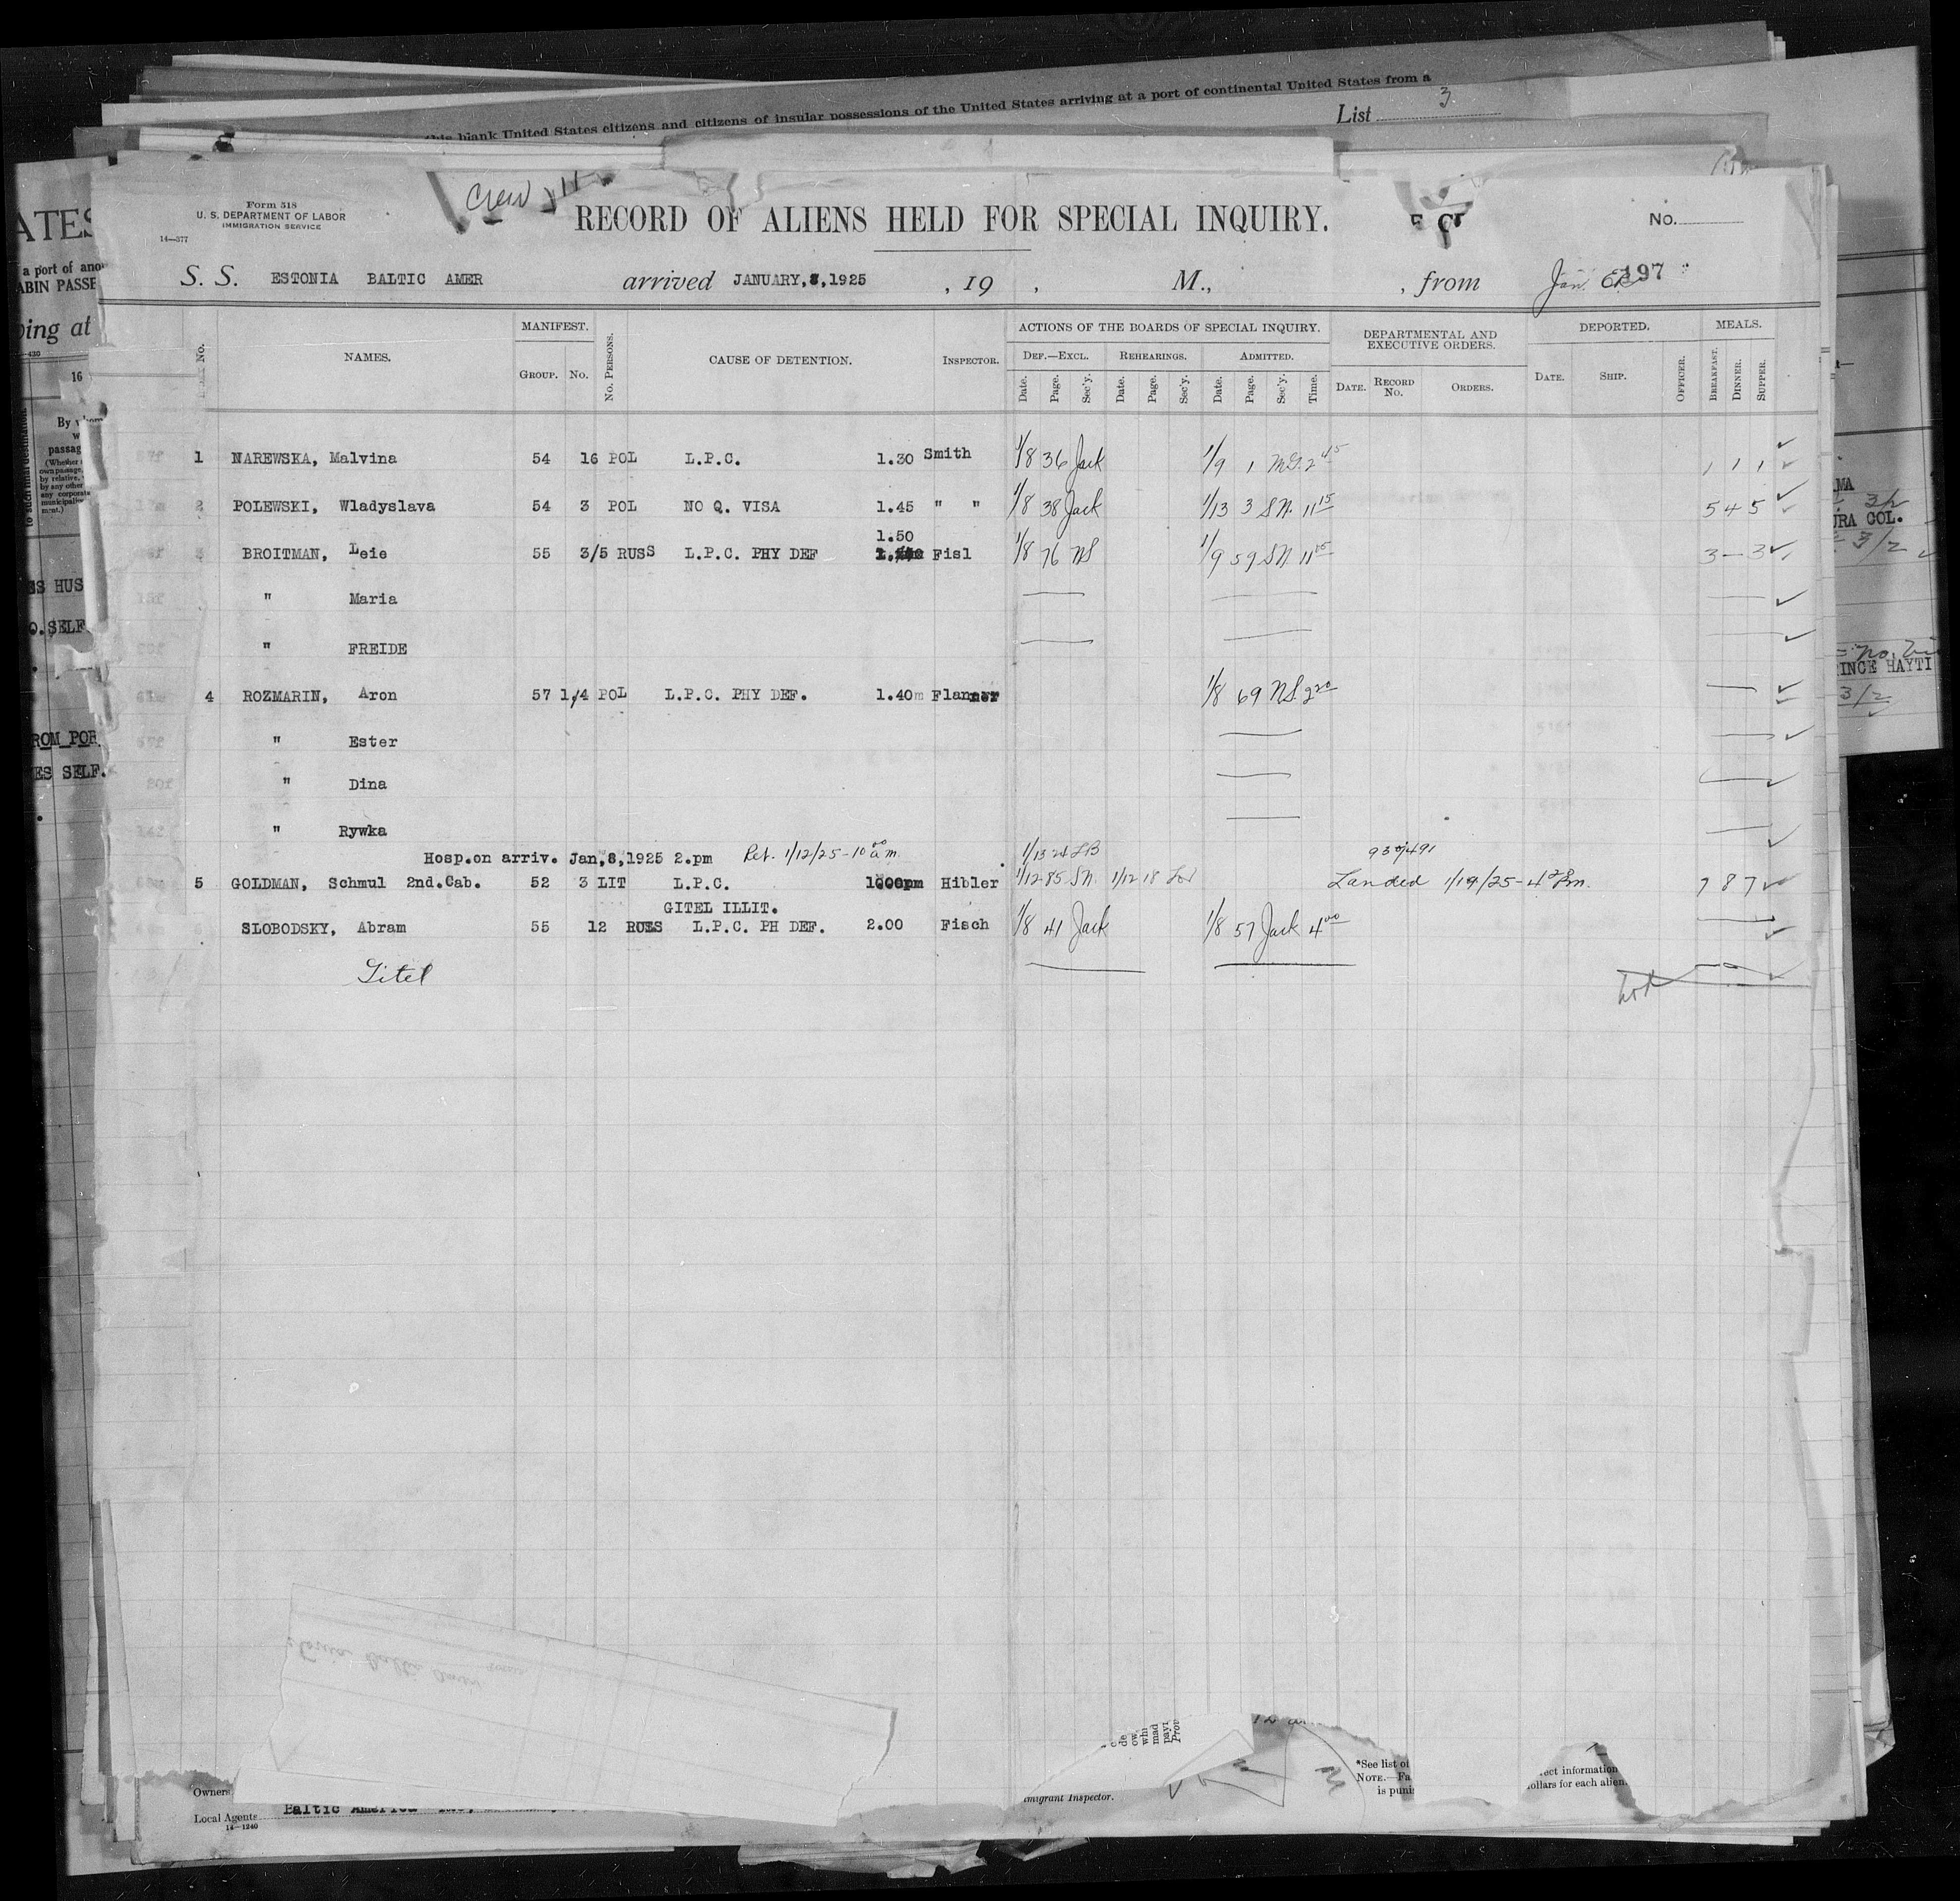 this blank United States citizens and citizens of insular possessions of the United States arriving at a port of continental United States from a
List 3
Form 518
U. S. DEPARTMENT OF LABOR
IMMIGRATION SERVICE
14—377
Crew
RECORD OF ALIENS HELD FOR SPECIAL INQUIRY.
No.
S. S. ESTONIA BALTIC AMER arrived JANUARY,8,1925 , 19 , M., , from Jan. 197
NAMES. MANIFEST. GROUP. No. No. PERSONS. CAUSE OF DETENTION. INSPECTOR. ACTIONS OF THE BOARDS OF SPECIAL INQUIRY. DEF.—EXCL. REHEARINGS. ADMITTED. DEPARTMENTAL AND EXECUTIVE ORDERS. DEPORTED. MEALS.
Date. Page. Sec'y. Date. Page. Sec'y. Date. Page. Sec'y. Time. DATE. RECORD No. ORDERS. DATE. SHIP. OFFICER. BREAKFAST. DINNER. SUPPER.
1 NAREWSKA, Malvina 54 16 POL L.P.C. 1.30 Smith 1/8 36 Jack 1/9 1 McG. 2 45 1 1 1
2 POLEWSKI, Wladyslava 54 3 POL NO Q. VISA 1.45 " " 1/8 38 Jack 1/13 3 SN. 11 15 5 4 5
1.50
3 BROITMAN, Leie 55 3/5 RUSS L.P.C. PHY DEF Fisl 1/8 76 NS 1/9 59 SN. 11 3 — 3
" Maria
" FREIDE
4 ROZMARIN, Aron 57 1/4 POL L.P.C. PHY DEF. 1.40m Flanner 1/8 69 NS. 2 20
" Ester
" Dina
" Rywka
Hosp.on arriv. Jan,8,1925 2.pm Ret. 1/12/25-10 00 a.m. 1/13 24 LB
5 GOLDMAN, Schmul 2nd.Cab. 52 3 LIT L.P.C. Hibler 1/12 85 SN. 1/12 18 Landed 1/19/25 - 7 8 7
GITEL ILLIT.
SLOBODSKY, Abram 55 12 RUSS L.P.C. PH DEF. 2.00 Fisch 1/8 41 Jack 1/8 57 Jack 4 00
Gitel
ATES
a port of ano
ABIN PASSE
ving at
16
By whom
passag
(Whether
own passage,
by relative,
by any other
any corporat
municipali
ment.)
to such final destination.
ES HUS
O.SELF
ROM POR
ES SELF.
MA
URA COL.
3/2
INCE HAYTI
3/2
Owners
Local Agents Baltic America
14—1240
migrant Inspector.
*See list of
NOTE.—Fa
is punis
rect information
dollars for each alien.